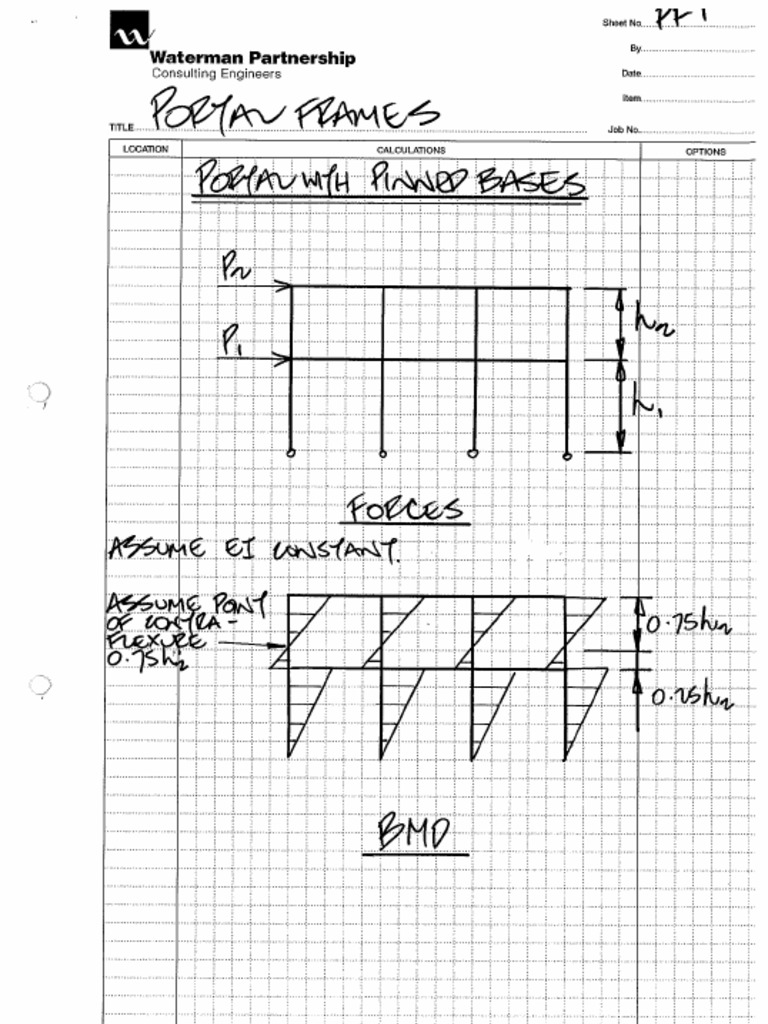 Sheet No. PF 1
By
Waterman Partnership
Consulting Engineers
Date
Item
TITLE PORTAL FRAMES
Job No.
LOCATION CALCULATIONS OPTIONS
PORTAL WITH PINNED BASES
P2
h2
P1
h1
FORCES
ASSUME EI CONSTANT.
ASSUME POINT
OF CONTRA-
FLEXURE
0.75h2
0.75h2
0.25h2
BMD